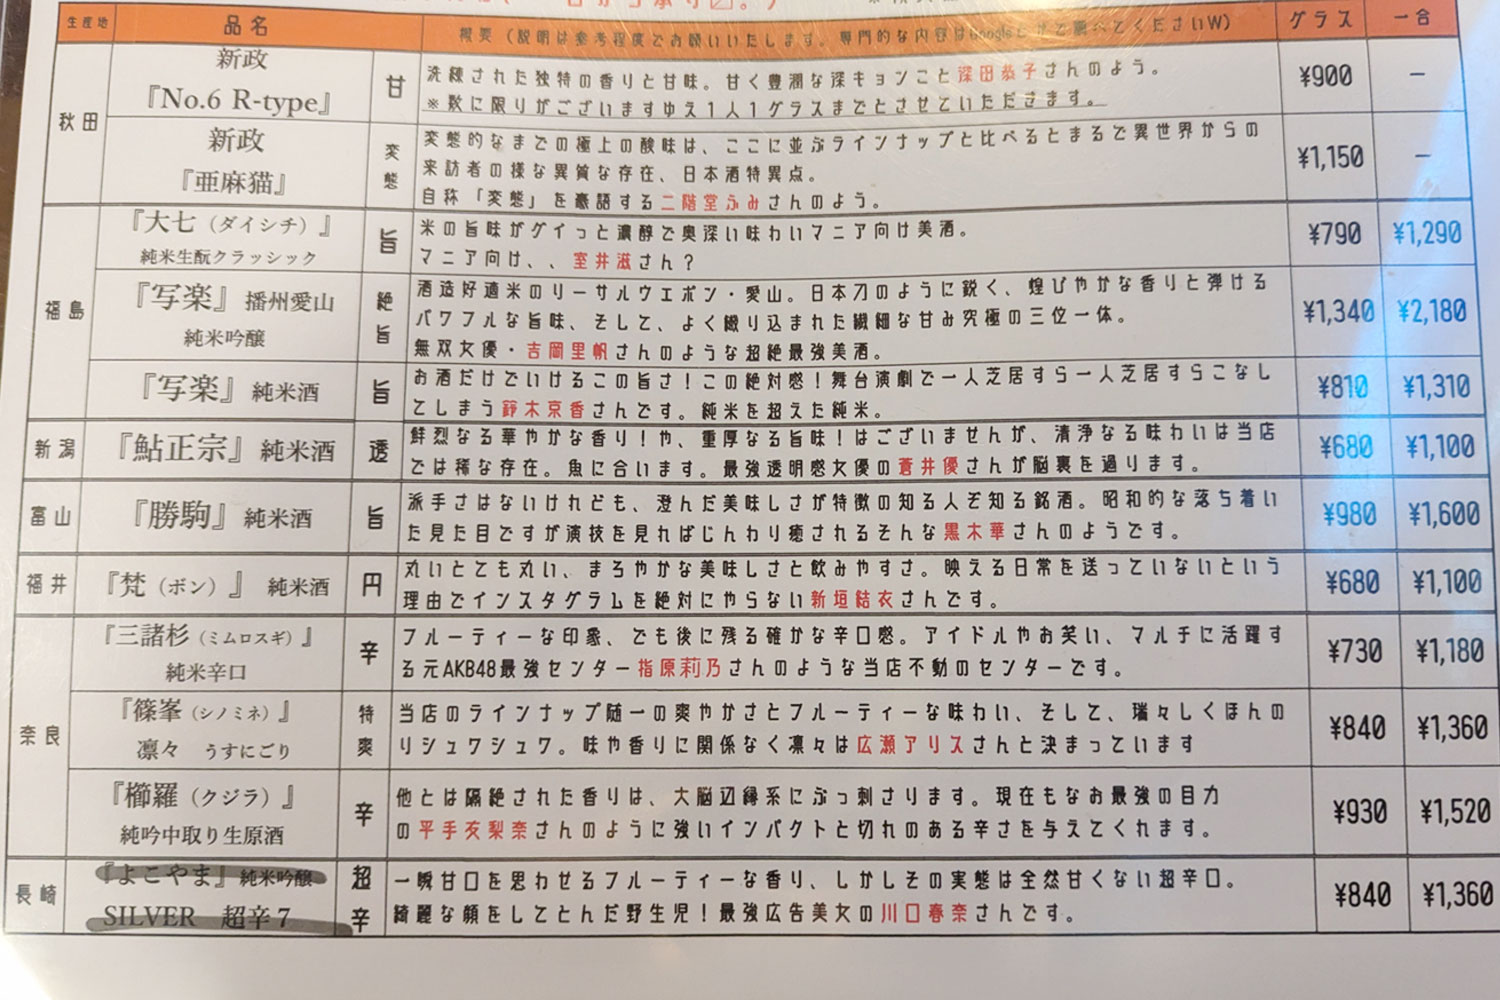 生産地 品名 概要（説明は参考程度でお願いいたします。専門的な内容はGoogle 調べてくださいW） グラス 一合
秋田
新政
『No.6 R-type』
甘
洗練された独特の香りと甘味。甘く豊潤な深キョンこと深田恭子さんのよう。
※数に限りがございますゆえ１人１グラスまでとさせていただきます。
¥900 −
新政
『亜麻猫』
変態
変態的なまでの極上の酸味は、ここに並ぶラインナップと比べるとまるで異世界からの
来訪者の様な異質な存在、日本酒特異点。
自称「変態」を豪語する二階堂ふみさんのよう。
¥1,150 −
福島
『大七（ダイシチ）』
純米生酛クラッシック
旨
米の旨味がグイっと濃醇で奥深い味わいマニア向け美酒。
マニア向け、、室井滋さん？
¥790 ¥1,290
『写楽』播州愛山
純米吟醸
絶旨
酒造好適米のリーサルウエポン・愛山。日本刀のように鋭く、煌びやかな香りと弾ける
パワフルな旨味、そして、よく練り込まれた繊細な甘み究極の三位一体。
無双女優・吉岡里帆さんのような超絶最強美酒。
¥1,340 ¥2,180
『写楽』純米酒
旨
お酒だけでいけるこの旨さ！この絶対感！舞台演劇で一人芝居すら一人芝居すらこなし
てしまう鈴木京香さんです。純米を超えた純米。
¥810 ¥1,310
新潟
『鮎正宗』純米酒
透
鮮烈なる華やかな香り！や、重厚なる旨味！はございませんが、清浄なる味わいは当店
では稀な存在。魚に合います。最強透明感女優の蒼井優さんが脳裏を過ります。
¥680 ¥1,100
富山
『勝駒』純米酒
旨
派手さはないけれども、澄んだ美味しさが特徴の知る人ぞ知る銘酒。昭和的な落ち着い
た見た目ですが演技を見ればじんわり癒されるそんな黒木華さんのようです。
¥980 ¥1,600
福井
『梵（ボン）』 純米酒
円
丸いとても丸い、まろやかな美味しさと飲みやすさ。映える日常を送っていないという
理由でインスタグラムを絶対にやらない新垣結衣さんです。
¥680 ¥1,100
奈良
『三諸杉（ミムロスギ）』
純米辛口
辛
フルーティーな印象、でも後に残る確かな辛口感。アイドルやお笑い、マルチに活躍す
る元AKB48最強センター指原莉乃さんのような当店不動のセンターです。
¥730 ¥1,180
『篠峯（シノミネ）』
凛々 うすにごり
特爽
当店のラインナップ随一の爽やかさとフルーティーな味わい、そして、瑞々しくほんの
りシュワシュワ。味や香りに関係なく凛々は広瀬アリスさんと決まっています
¥840 ¥1,360
『櫛羅（クジラ）』
純吟中取り生原酒
辛
他とは隔絶された香りは、大脳辺縁系にぶっ刺さります。現在もなお最強の目力
の平手友梨奈さんのように強いインパクトと切れのある辛さを与えてくれます。
¥930 ¥1,520
長崎
『よこやま』純米吟醸
SILVER 超辛７
超辛
一瞬甘口を思わせるフルーティーな香り、しかしその実態は全然甘くない超辛口。
綺麗な顔をしてとんだ野生児！最強広告美女の川口春奈さんです。
¥840 ¥1,360